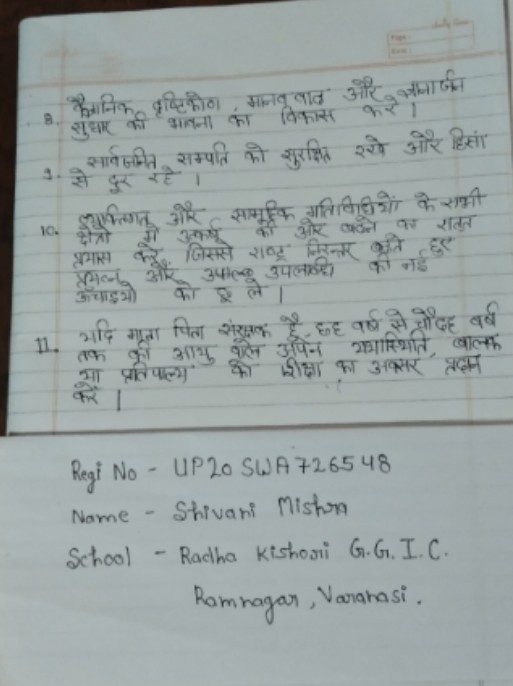 8. वैज्ञानिक दृष्टिकोण, मानववाद और ज्ञानार्जन
सुधार की भावना का विकास करे ।
9. सार्वजनित सम्पति को सुरक्षित रखे और हिंसा
से दुर रहे ।
10. व्यक्तिगत और सामूहिक गतिविधियों के सभी
क्षेत्रों में उत्कर्ष की ओर बढने का सतत
प्रयास करे, जिससे राष्ट्र निरन्तर बढते हुए
प्रयत्न और उपलब्धि की नई
ऊंचाइयो को छू ले ।
11. यदि माता पिता संरक्षक है, छह वर्ष से चौदह वर्ष
तक की आयु वाले अपने यथास्थिति, बालक
या प्रतिपाल्य को शिक्षा का अवसर प्रदान
करें |
Page:
Date:
Regi No - UP20 SWA726548
Name - Shivani Mishra
School - Radha Kishori G.G.I.C.
Ramnagar, Varanasi.